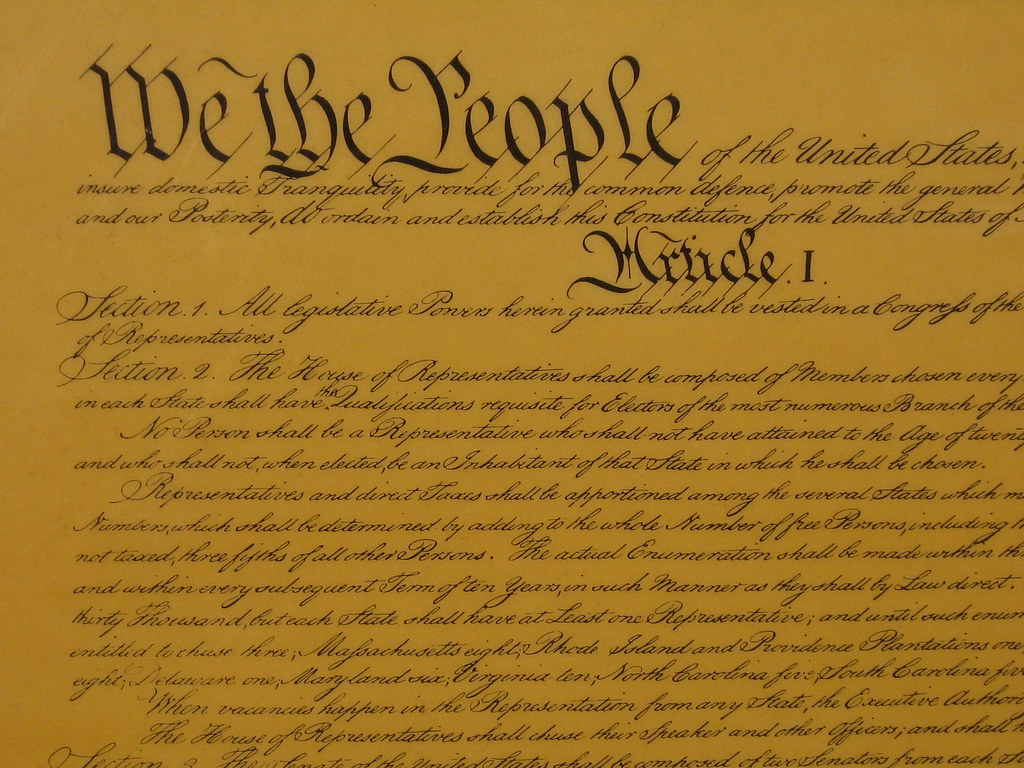 We the People of the United States,
insure domestic Tranquility, provide for the common defence, promote the general
and our Posterity, do ordain and establish this Constitution for the United States of
Article. I.
Section. 1. All legislative Powers herein granted shall be vested in a Congress of the
of Representatives.
Section. 2. The House of Representatives shall be composed of Members chosen every
in each State shall have the Qualifications requisite for Electors of the most numerous Branch of the
No Person shall be a Representative who shall not have attained to the Age of twenty
and who shall not, when elected, be an Inhabitant of that State in which he shall be chosen.
Representatives and direct Taxes shall be apportioned among the several States which
Numbers, which shall be determined by adding to the whole Number of free Persons, including
not taxed, three fifths of all other Persons. The actual Enumeration shall be made within
and within every subsequent Term of ten Years, in such Manner as they shall by Law direct.
thirty Thousand, but each State shall have at Least one Representative; and until such enum
entitled to chuse three, Massachusetts eight, Rhode Island and Providence Plantations one
eight, Delaware one, Maryland six, Virginia ten, North Carolina five, South Carolina five
When vacancies happen in the Representation from any State, the Executive Author
The House of Representatives shall chuse their Speaker and other Officers; and shall
Section. 3. The Senate of the United States shall be composed of two Senators from each